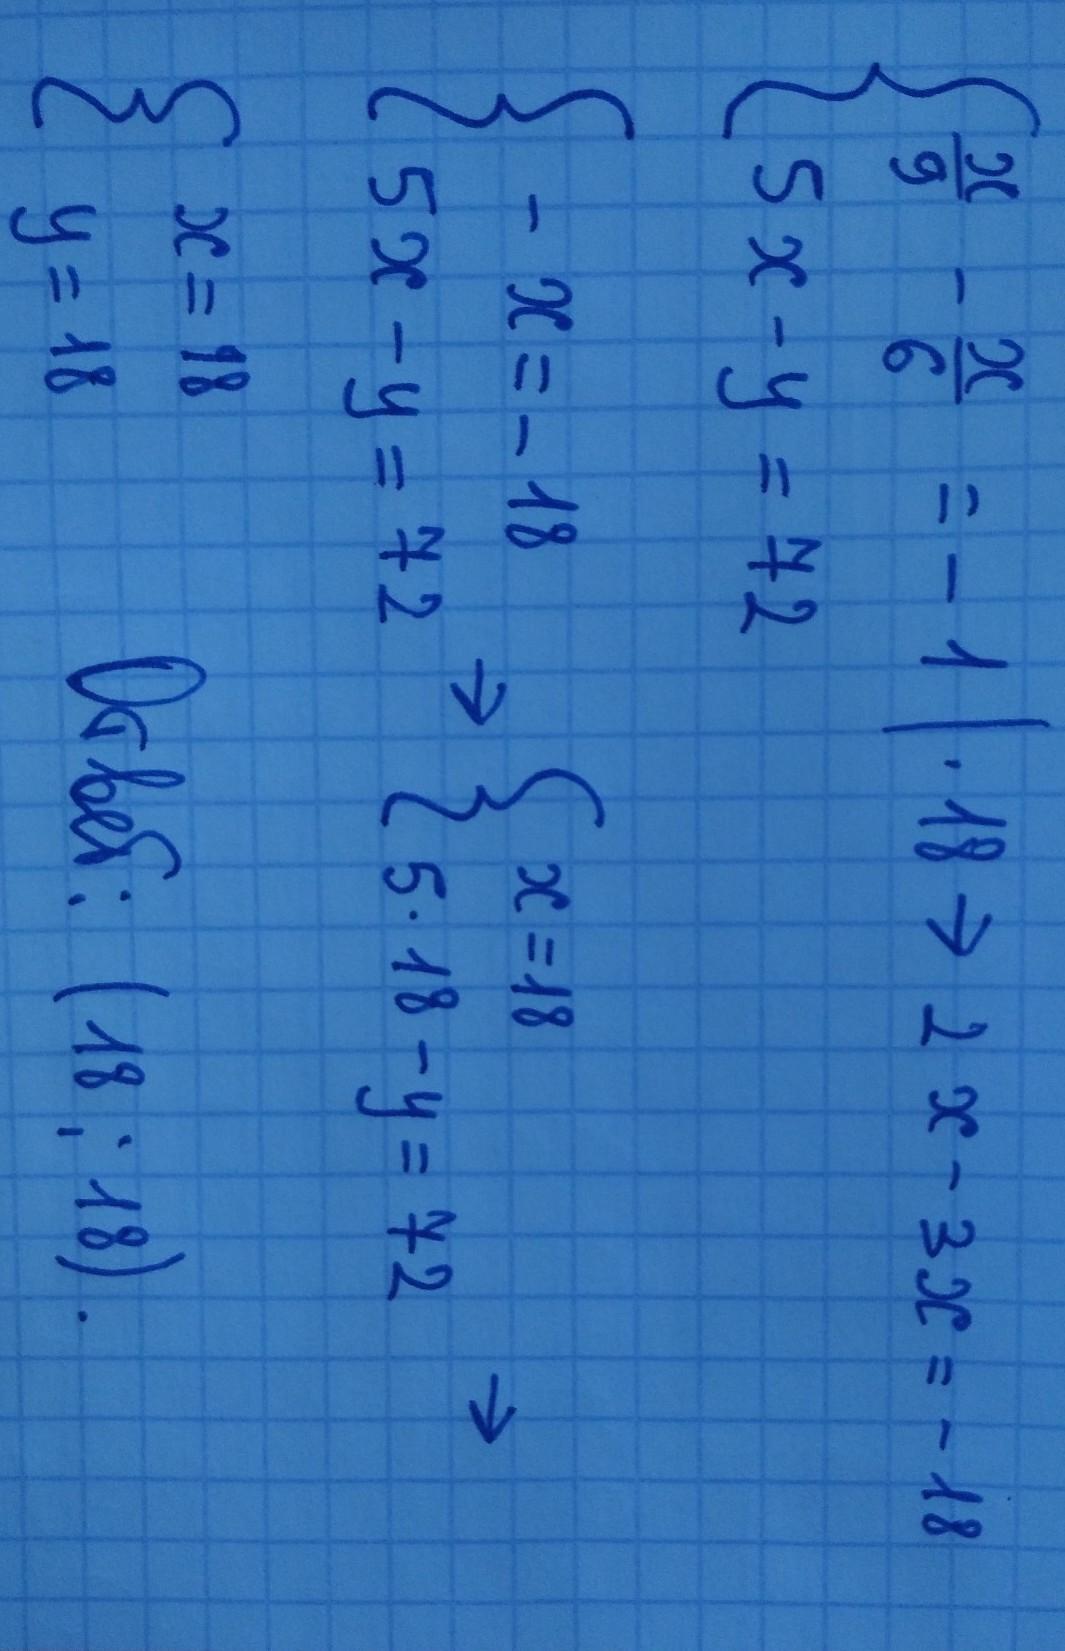 { x/9 - x/6 = - 1 | · 18 → 2x - 3x = - 18
5x - y = 72
{ - x = - 18
5x - y = 72 → { x = 18
5 · 18 - y = 72 →
{ x = 18
y = 18 Ответ: (18; 18).